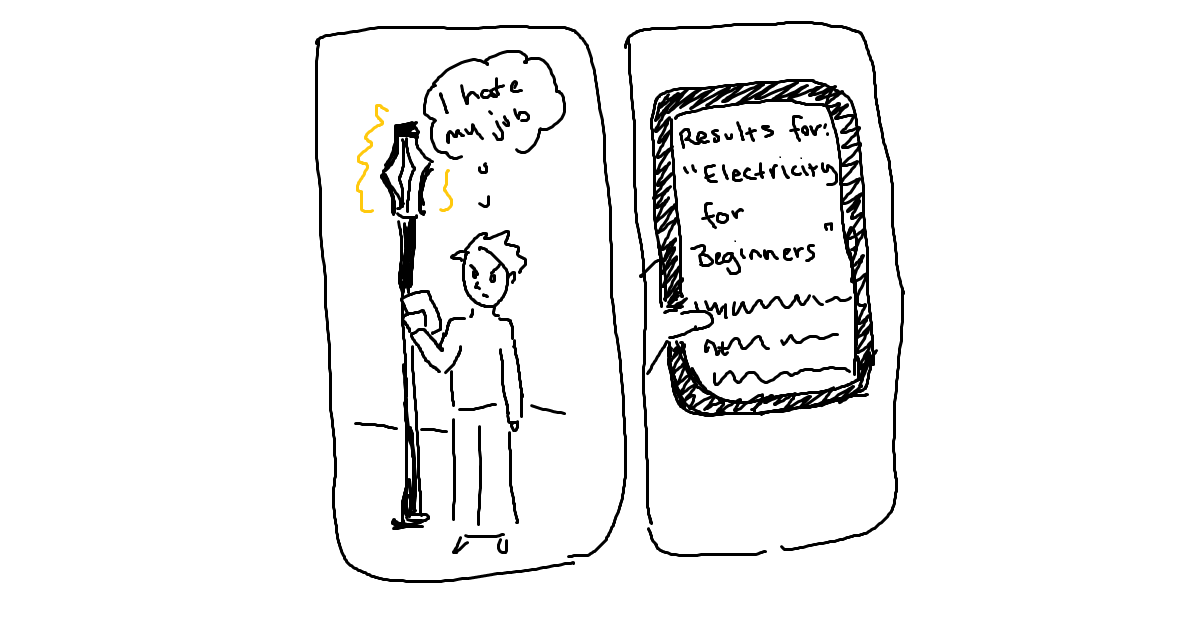 I hate
my job
Results for:
"Electricity
for
Beginners"